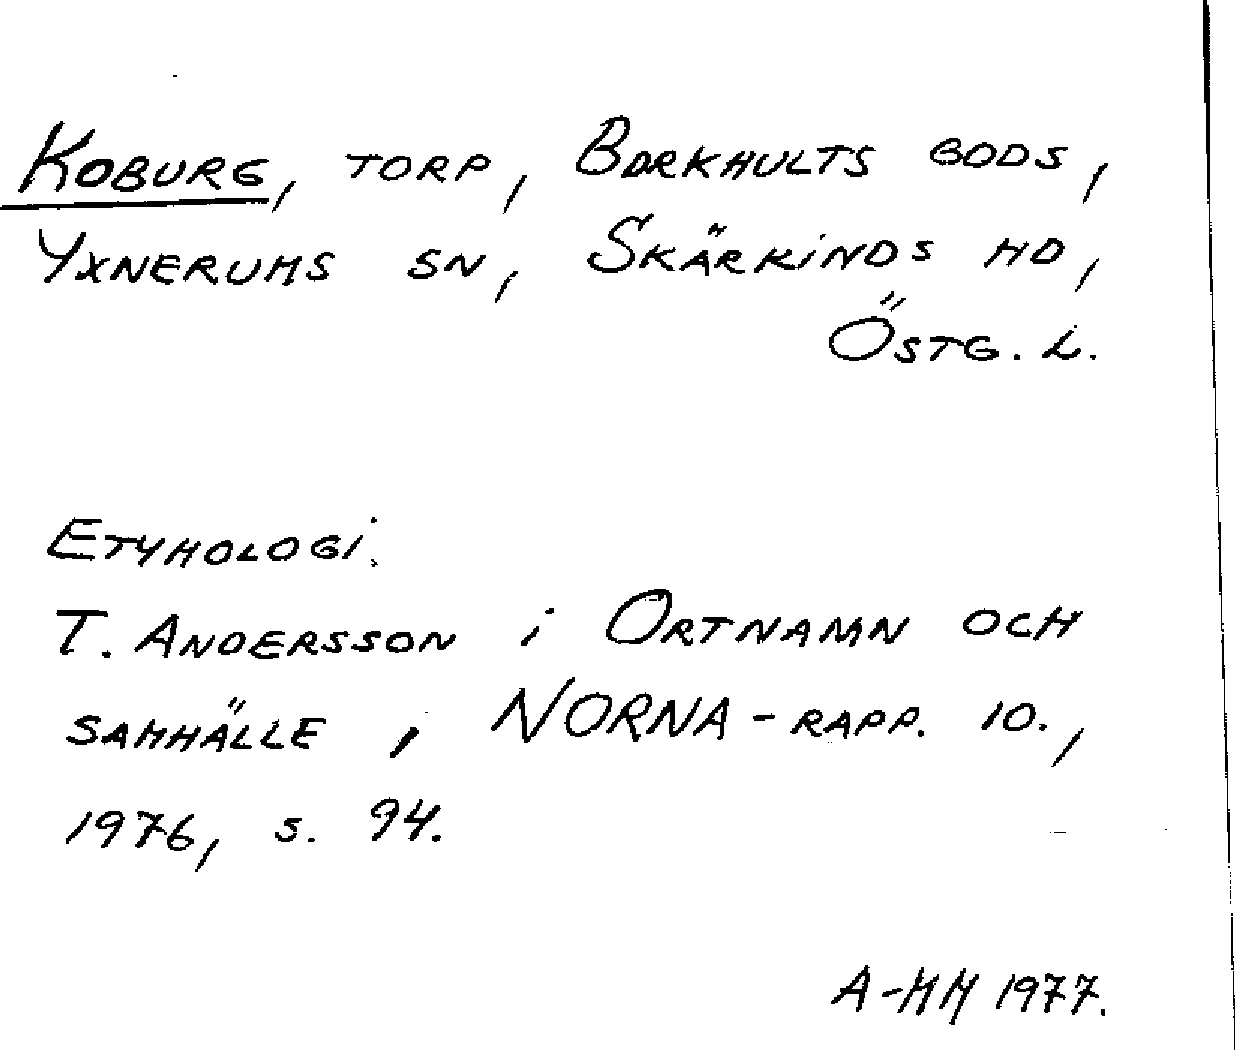 Koburg, torp, Borkhults gods,
Yxnerums sn, Skärkinds hd,
Östg. L.
Etymologi.
T. Andersson i Ortnamn och
samhälle, NORNA-rapp. 10.,
1976, s. 94.
A-MM 1977.